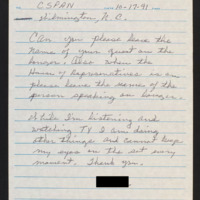 CSPAN 10-17-91
Wilmington, N.C.
Can you please leave the
name of your guest on the
longer. Also when the
House of Representatives is on
please leave the names of the
person speaking on longer.
While I'm listening and
watching TV I am doing
other things and cannot keep
my eyes on the set every
moment. Thank you.